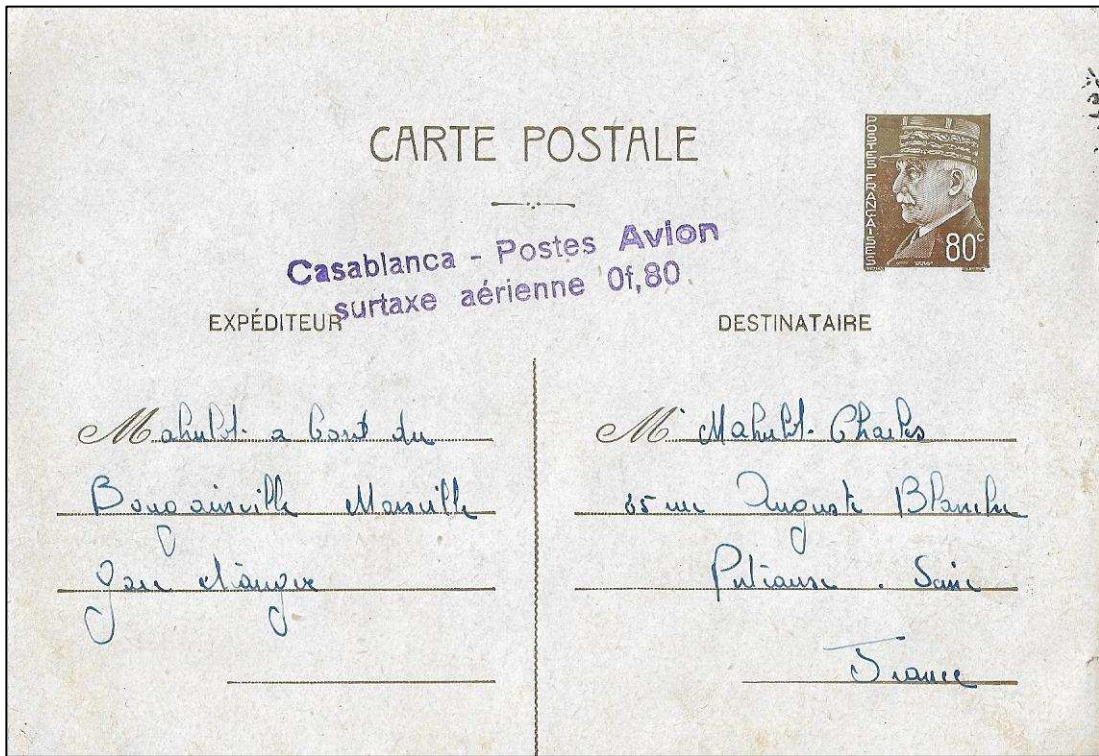 CARTE POSTALE
POSTES FRANÇAISES
80c
Casablanca - Postes Avion
surtaxe aérienne 0f,80.
EXPÉDITEUR
Mahulot. a bord du
Bougainville Marseille
gare étranger
DESTINATAIRE
M Mahulot. Charles
rue Auguste Blanche
Puteaux. Seine
France